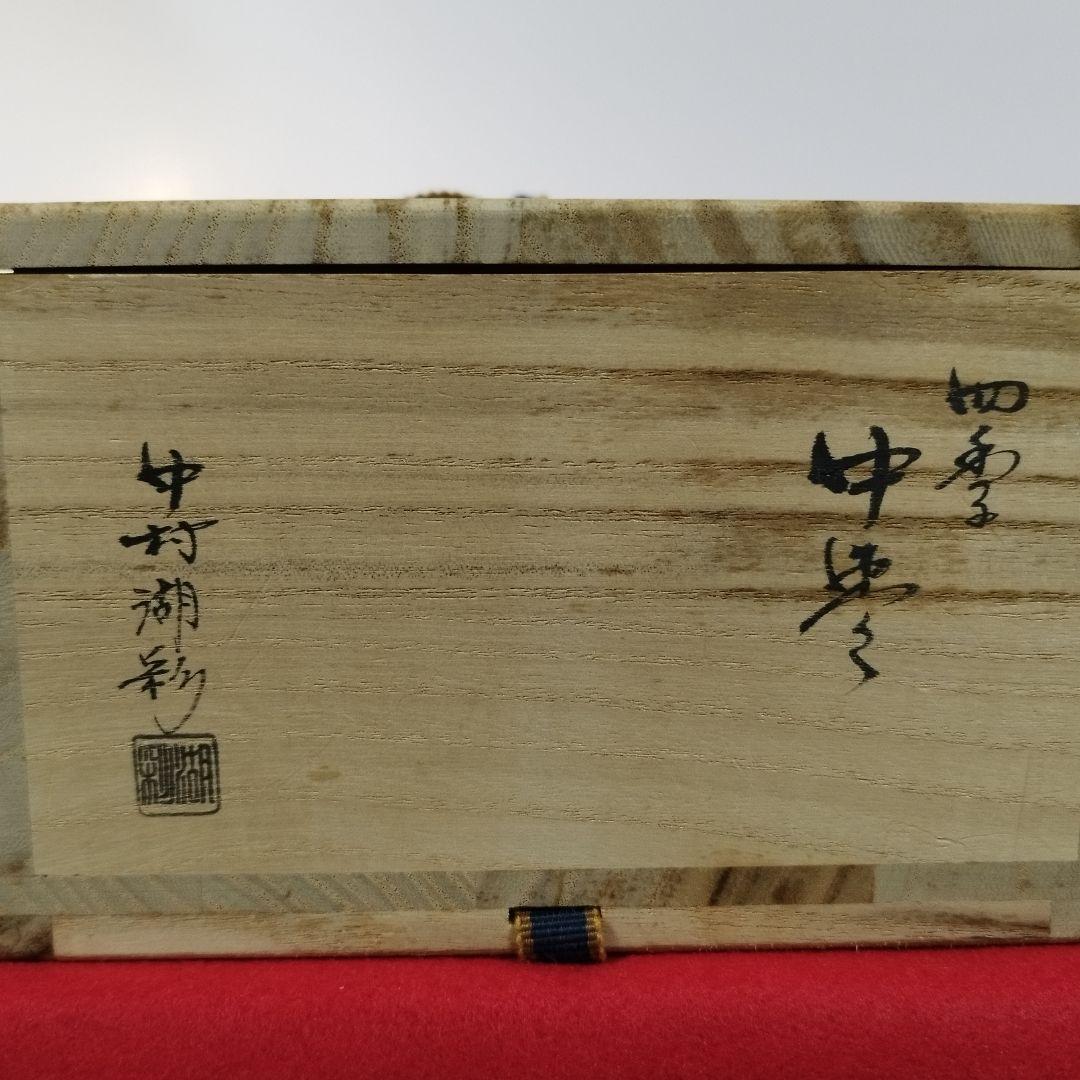 四季
中棗
中村湖彩
湖彩